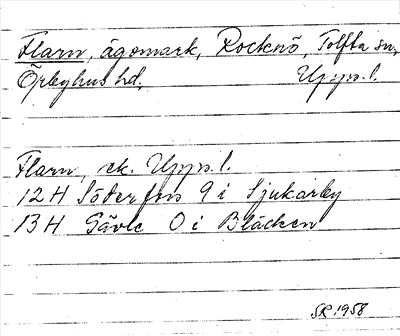 Flarn, ägomark, Rocknö, Tolfta sn,
Örbyhus hd, Upps. l.
Flarn, ek. Upps. l.
12 H Söderfors 9 i Sjukarby
13 H Gävle O i Bläcken
SR 1958